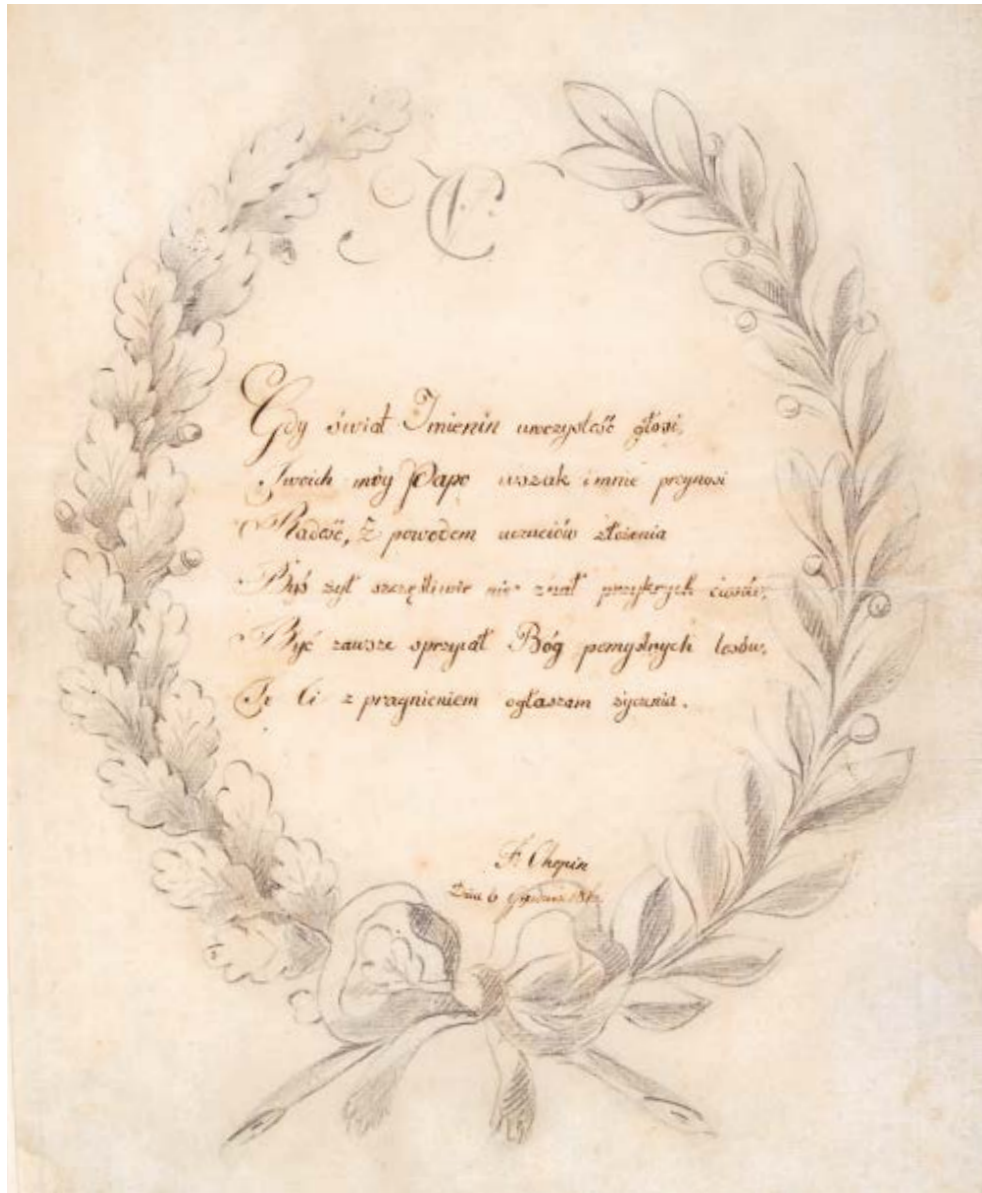 C
Gdy świat Imienin uroczystość głosi,
Twoich móy Papo wszak i mnie przynosi
Radość, Z powodem uczuciów złożenia
Byś żył szczęśliwie nie znał przykrych ciosów,
Być zawsze sprzyiał Bóg pomyślnych losów,
Te Ci z pragnieniem ogłaszam życzenia.
F. Chopin
Dnia 6 Grudnia